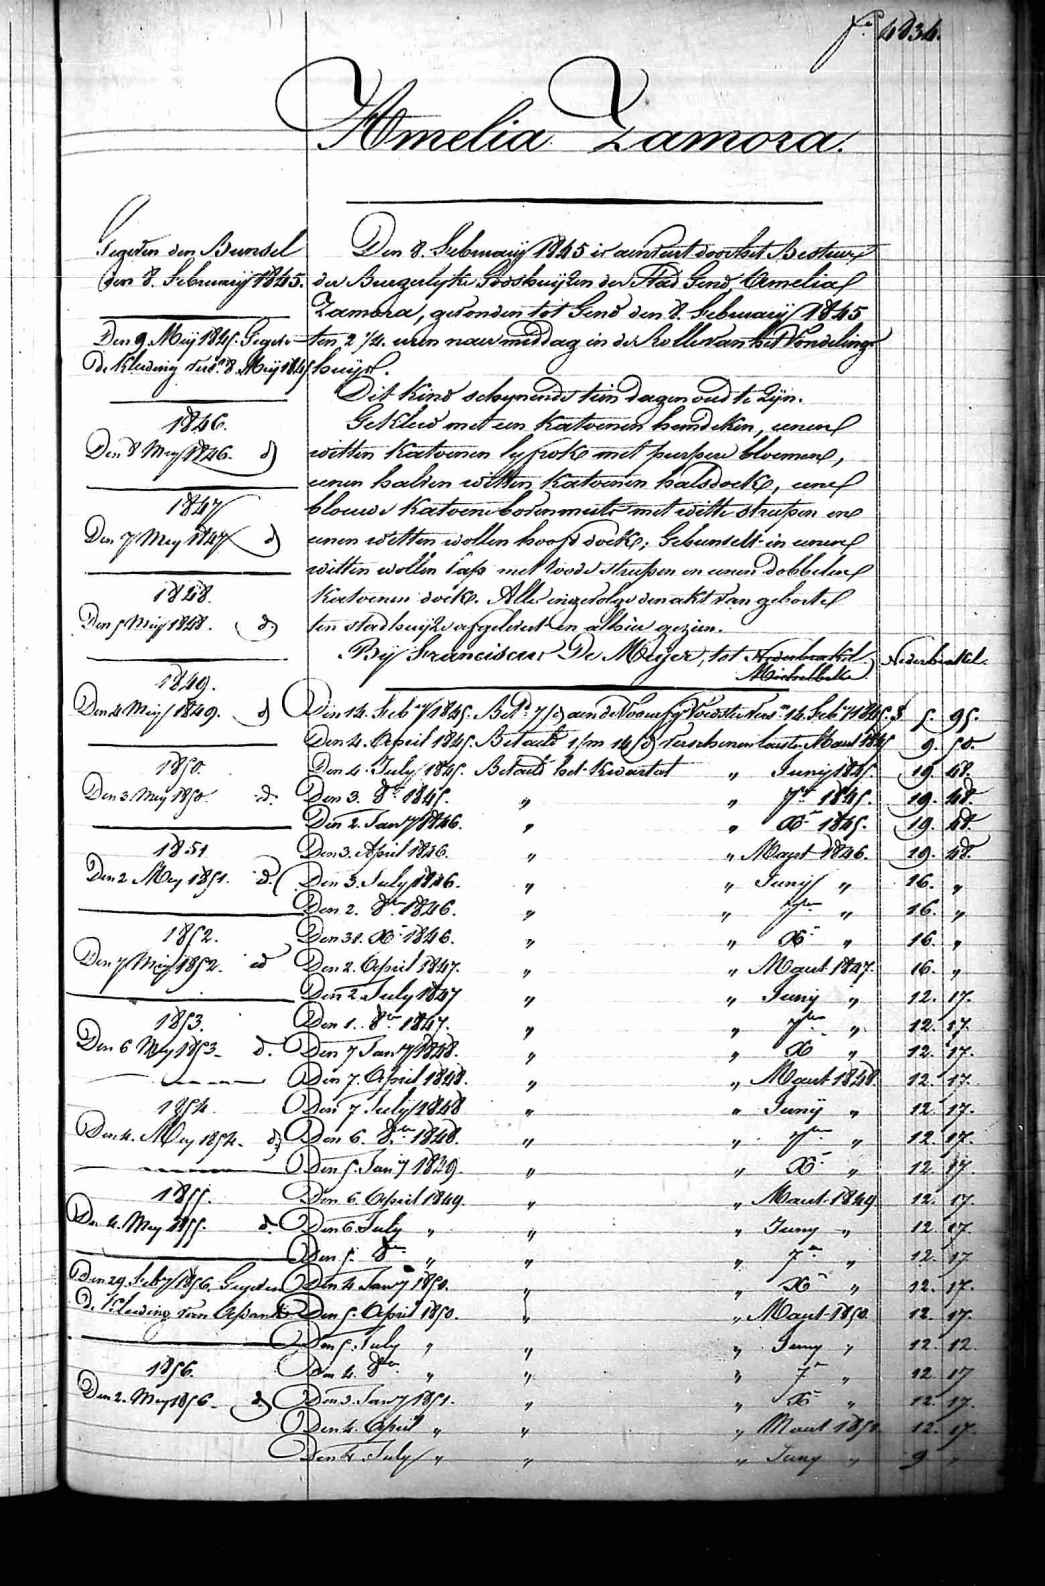 f.o 4834.
Amelia Zamora.
Gegeven den Bunsel
den 8. Februarij 1845.
Den 9. Meij 1845. Gegeve-
de Kleeding vers.n 8 Meij 1845
1846.
Den 8 Meij 1846. d.o
1847
Den 7 Meij 1847 d.o
1848.
Den 5 Meij 1848. d.o
1849.
Den 4 Meij 1849. d.o
1850.
Den 3. Meij 1850. d.o
1851
Den 2 Mey 1851. d.o
1852.
Den 7 Meij 1852. d.o
1853.
Den 6 Mey 1853. d.o
1854
Den 4. Mey 1854. d.o
1855.
Den 4. Mey 1855. d.o
Den 29. Feb.y 1856. Gegeven
de Kleeding van
1856.
Den 2. Mey 1856. d.o
Den 8. Februarij 1845 is aenveert door het Bestuur
der Burgerlyke Godshuijzen der Stad Gend, Amelia
Zamora, gevonden tot Gend den 8. Februarij 1845
ten 2 1/4 uren naermiddag in de Rolle van het Vondeling-
huijs.
Dit Kind schynende tien dagen oud te zijn.
Gekleed met een Katoenen hemdeken, eenen
witten Katoenen lyfrok met purpere bloemen,
eenen halven witten Katoenen halsdoek, eene
blouwe Katoene bovenmuts met witte streepen en
eenen witten wollen hoofddoek; Gebunselt in eenen
witten wollen lap met roode streepen en eenen dobbelen
Katoenen doek. Alles ingevolge den akt van geboorte
ten stadhuijze afgelevert en alhier gezien.
Bij Franciscus De Meyer, tot Nederbrakel Nederbrakel.
Michelbeke.
Den 14. Feb.y 1845. Bet.d 7/ aen de Voorsz. Voedster vers.n 14. Feb.y 1845. 5. 95.
Den 4. April 1845. Betaeld 1/m 14/d verschenen laesten Maert 1845 9. 50.
Den 4. July 1845. Betaeld het Kwartael " Junij 1845. 19. 48.
Den 3. 8.er 1845. " " 7.er 1845. 19. 48.
Den 2. Jan.y 1846. " " X.er 1845. 19. 48.
Den 3. April 1846. " " Maert 1846. 19. 48.
Den 3. July 1846. " " Junij " 16. "
Den 2. 8.er 1846. " " 7.er " 16. "
Den 31. X.er 1846. " " X.er " 16. "
Den 2. April 1847. " " Maert 1847. 16. "
Den 2. July 1847 " " Junij " 12. 17.
Den 1. 8.er 1847. " " 7.er " 12. 17.
Den 7 Jan.y 1848. " " X.er " 12. 17.
Den 7. April 1848. " " Maert 1848 12. 17.
Den 7. July 1848 " " Junij " 12. 17.
Den 6. 8.er 1848. " " 7.er " 12. 17.
Den 5. Jan.y 1849. " " X.er " 12. 17
Den 6. April 1849. " " Maert 1849 12. 17.
Den 6. July " " " Juny " 12. 17
Den 5. 8.er " " " 7.er " 12. 17
Den 4 Jan.y 1850. " " X.er " 12. 17.
Den 5. April 1850. " " Maert 1850 12. 17.
Den 5. July " " " Juny " 12. 12
Den 4. 8.er " " " 7.er " 12. 17
Den 3. Jan.y 1851. " " X.er " 12. 17.
Den 4. April " " " Maert 1851 12. 17.
Den 4. July " " " Juny " 9 "